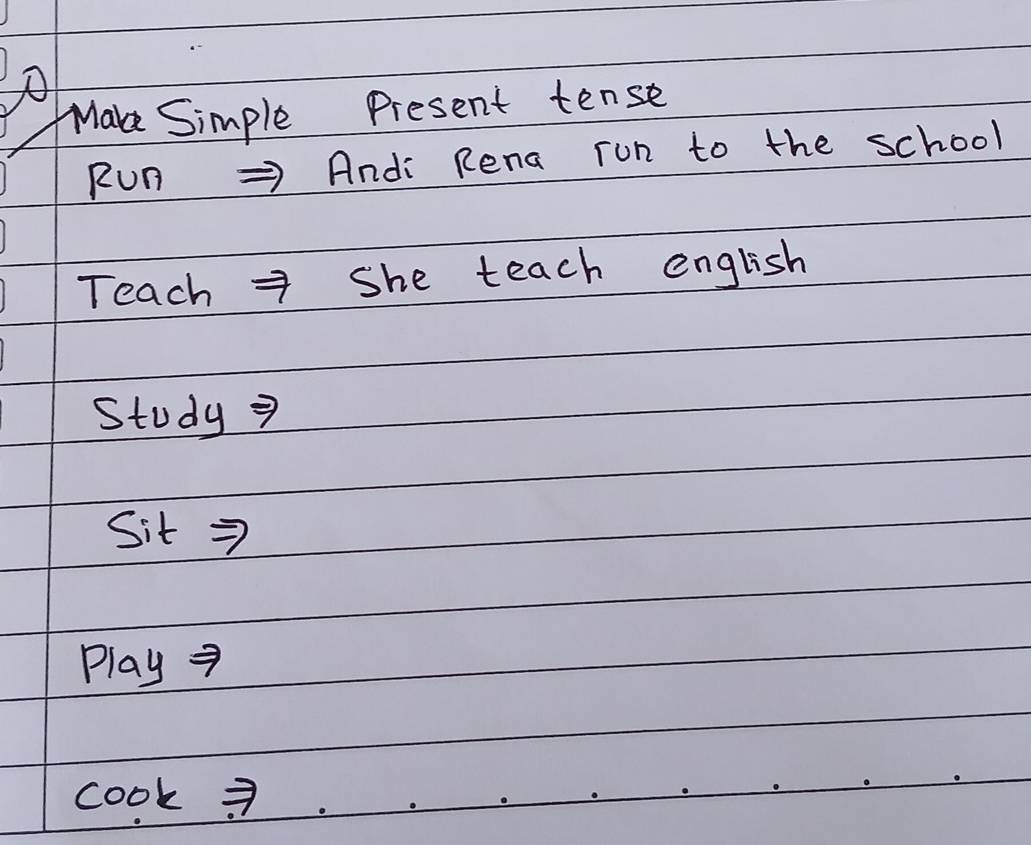 Make Simple Present tense
Run ⇒ Andi Rena run to the school
Teach ⇒ She teach english
Study ⇒
Sit ⇒
Play ⇒
Cook ⇒ . . . . . . . .